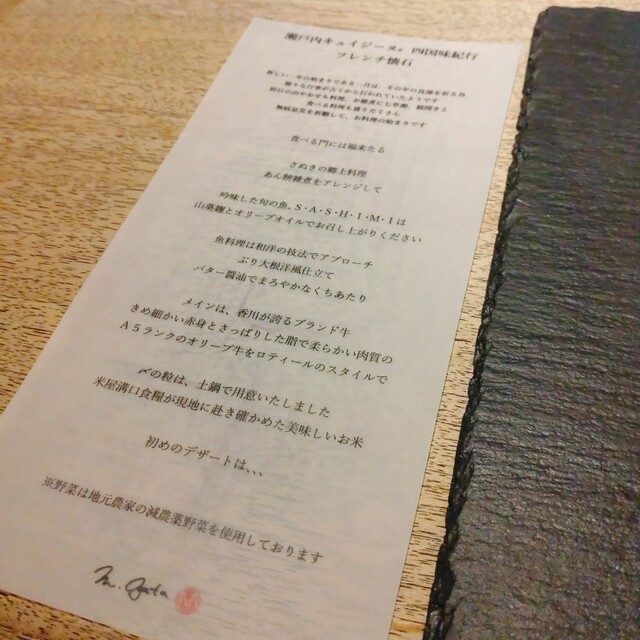 瀬戸内キュイジーヌ。四国味紀行
フレンチ懐石
新しい一年の始まりである一月は、その年の良運を祈る為
様々な行事が古くから行われていたようです
無病息災を祈願して、お料理の始まりです
食べる門には福来たる
さぬきの郷土料理
あん餅雑煮をアレンジして
吟味した旬の魚、S・A・S・H・I・M・Iは
山葵麹とオリーブオイルでお召し上がりください
魚料理は和洋の技法でアプローチ
ぶり大根洋風仕立て
バター醤油でまろやかなくちあたり
メインは、香川が誇るブランド牛
きめ細かい赤身とさっぱりした脂で柔らかい肉質の
A5ランクのオリーブ牛をロティールのスタイルで
〆の粒は、土鍋で用意いたしました
米屋溝口食糧が現地に赴き確かめた美味しいお米
初めのデザートは、、、
※野菜は地元農家の減農薬野菜を使用しております